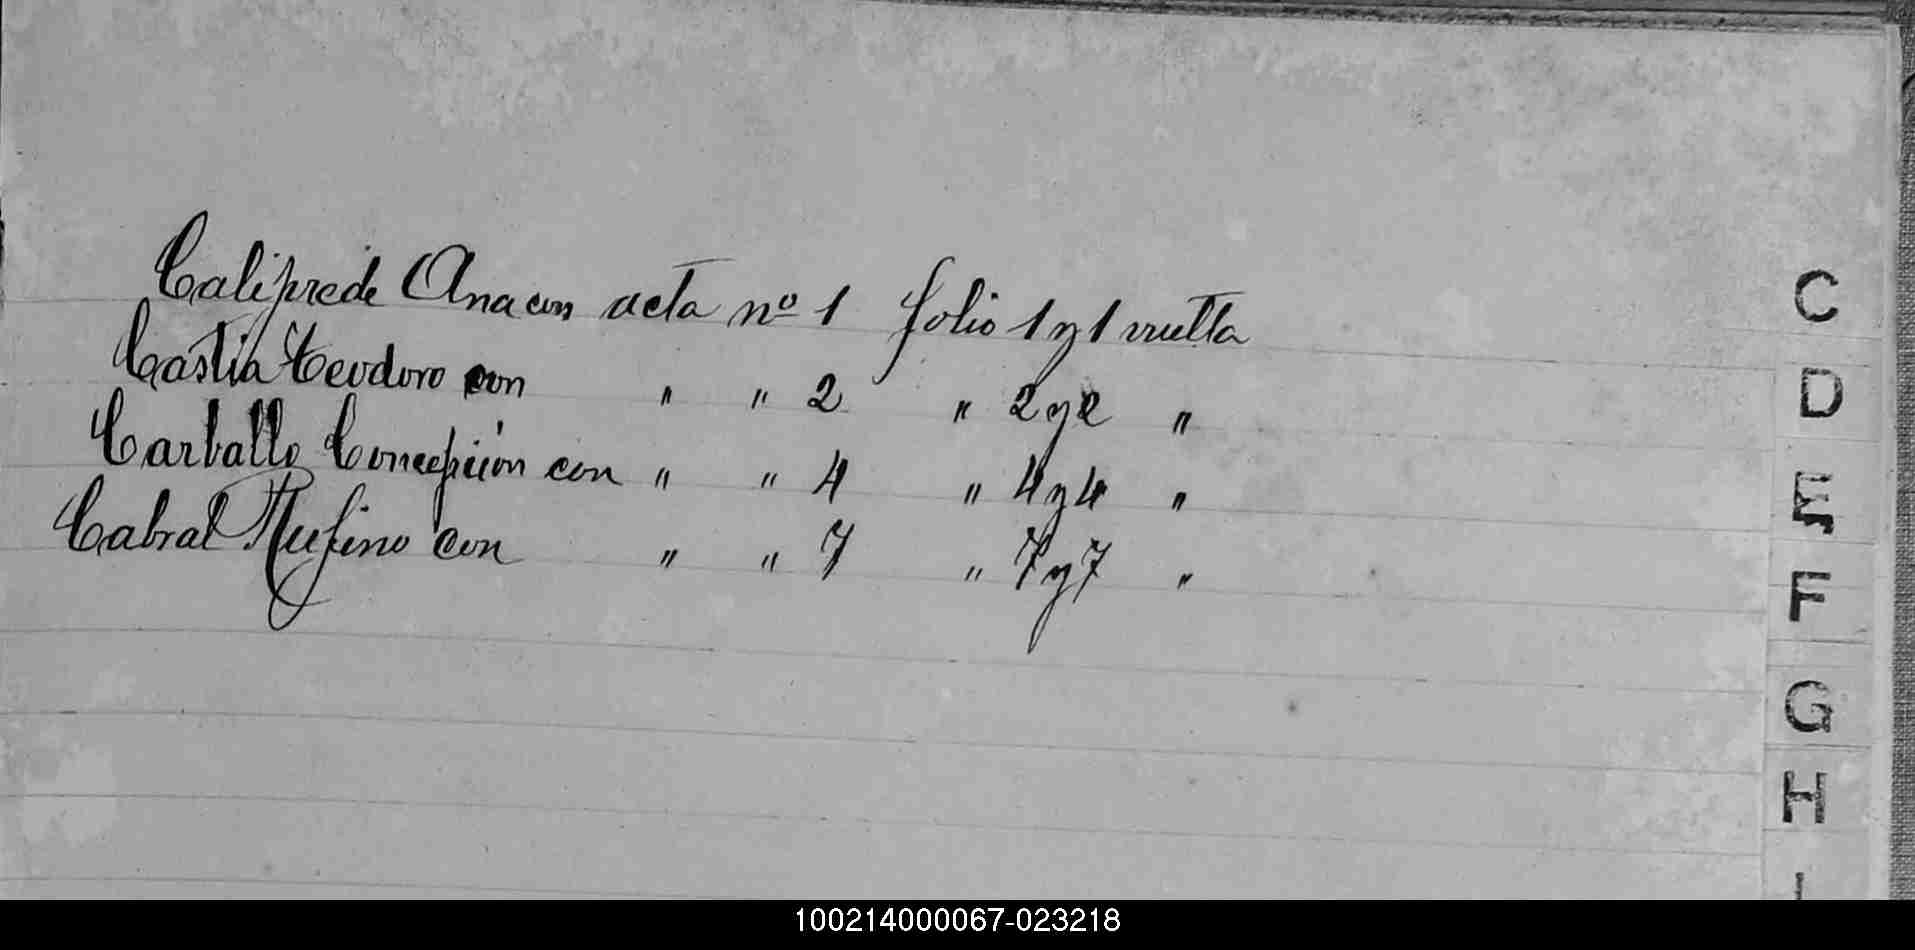 Caliprede Ana con acta nº 1 folio 1 y 1 vuelta
Castia Teodoro con " " 2 " 2 y 2 "
Carballo Concepción con " " 4 " 4 y 4 "
Cabral Rufino con " " 7 " 7 y 7 "
C
D
E
F
G
H
I
100214000067-023218